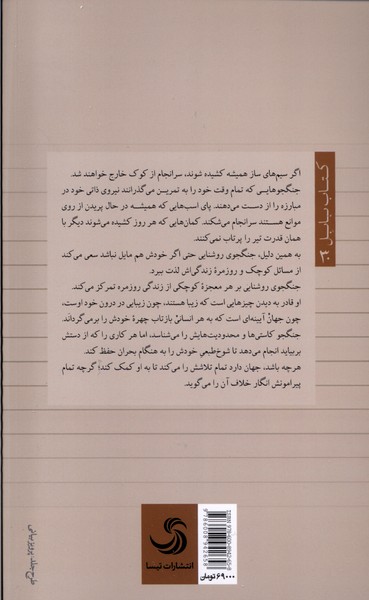 کتاب بابل
اگر سیم‌های ساز همیشه کشیده شوند، سرانجام از کوک خارج خواهند شد.
جنگجوهایی که تمام وقت خود را به تمرین می‌گذرانند نیروی ذاتی خود در
مبارزه را از دست می‌دهند. پای اسب‌هایی که همیشه در حال پریدن از روی
موانع هستند سرانجام می‌شکند. کمان‌هایی که هر روز کشیده می‌شوند دیگر با
همان قدرت تیر را پرتاب نمی‌کنند.
به همین دلیل، جنگجوی روشنایی حتی اگر خودش هم مایل نباشد سعی می‌کند
از مسائل کوچک و روزمرهٔ زندگی‌اش لذت ببرد.
جنگجوی روشنایی بر هر معجزهٔ کوچکی از زندگی روزمره تمرکز می‌کند.
او قادر به دیدن چیزهایی است که زیبا هستند، چون زیبایی در درون خود اوست،
چون جهان آیینه‌ای است که به هر انسانی بازتاب چهرهٔ خودش را برمی‌گرداند.
جنگجو کاستی‌ها و محدودیت‌هایش را می‌شناسد، اما هر کاری را که از دستش
بربیاید انجام می‌دهد تا شوخ‌طبعی خودش را به هنگام بحران حفظ کند.
هرچه باشد، جهان دارد تمام تلاشش را می‌کند تا به او کمک کند؛ گرچه تمام
پیرامونش انگار خلاف آن را می‌گوید.
انتشارات تیسا
۶۹۰۰۰ تومان
طرح جلد: پرویز بیانی